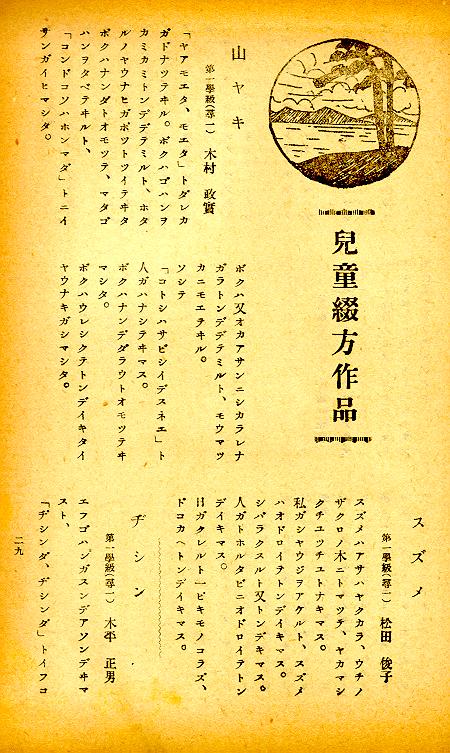 兒童綴方作品
山ヤキ
第一學級(尋一) 木村 政實
「ヤアモエタ、モエタ」トダレカ
ガドナツテヰル。ボクハゴハンヲ
カミカミトンデデテミルト、ホタ
ルノヤウナヒガポツトツイテヰタ
ボクハナンダトオモツテ、マタゴ
ハンヲタベテヰルト、
「コンドコソハホンマダ」トニイ
サンガイヒマシタ。
ボクハ又オカアサンニシカラレナ
ガラトンデデテミルト、モウマツ
カニモエテヰル。
ソシテ
「コトシハサビシイデスネエ」ト
人ガハナシテヰマス。
ボクハナンデダラウトオモツテヰ
マシタ。
ボクハウレシクテトンデイキタイ
ヤウナキガシマシタ。
スズメ
第一學級(尋一) 松田 俊子
スズメハアサハヤクカラ、ウチノ
ザクロノ木ニトマツテ、ヤカマシ
クチユツチユトナキマス。
私ガシヤウジヲアケルト、スズメ
ハオドロイテトンデイキマス。
シバラクスルト又トンデキマス。
人ガトホルタビニオドロイテトン
デイキマス。
日ガクレルト一ピキモノコラズ、
ドコカヘトンデイキマス。
ヂシン
第一學級(尋一) 木平 正男
エフゴハンガスンデアソンデヰマ
スト、
「ヂシンダ、ヂシンダ」トイフコ
二九